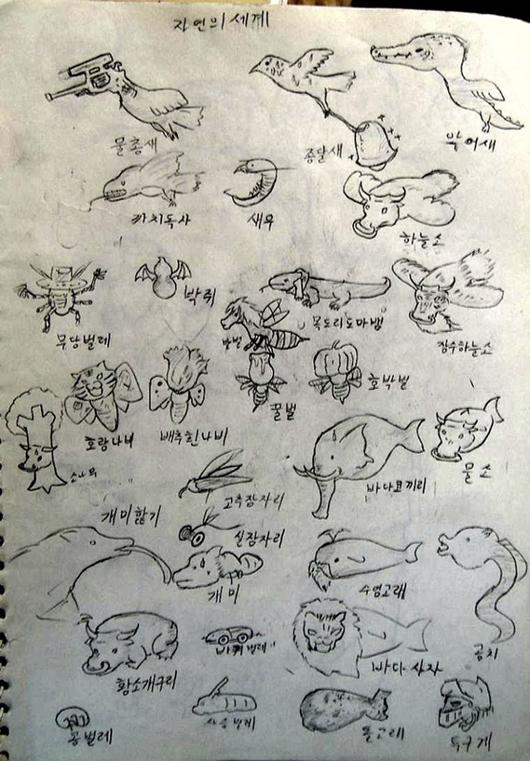 자연의 세계
물총새
종달새
악어새
까치독사
새우
하늘소
무당벌레
박쥐
목도리도마뱀
장수하늘소
말벌
호랑나비
배추흰나비
꿀벌
호박벌
소나무
고추장자리
바다코끼리
물소
개미핥기
실장자리
개미
수염고래
공치
황소개구리
바퀴벌레
바다사자
콩벌레
사슴벌레
돌고래
투구게